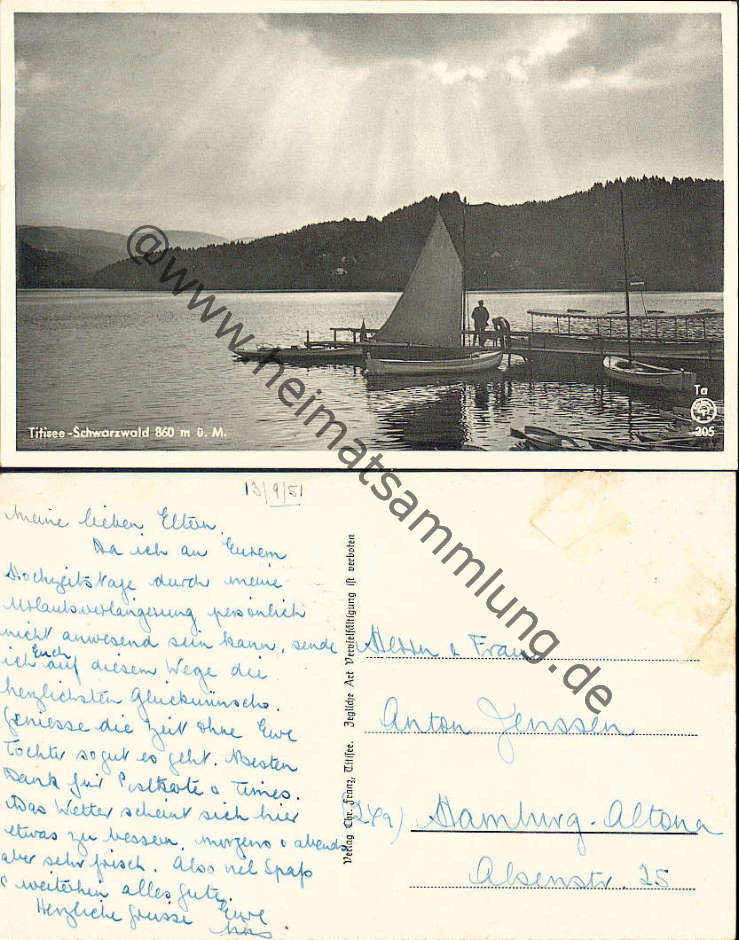 Titisee-Schwarzwald 860 m ü. M.
Ta
205
@www.heimatsammlung.de
13/9/51
Meine lieben Eltern,
Da ich an Eurem
Hochzeitstage durch meine
Urlaubsverlängerung persönlich
nicht anwesend sein kann, sende
ich Euch auf diesem Wege die
herzlichsten Glückwünsche.
Geniesse die Zeit ohne Eure
Tochter sogut es geht. Besten
Dank für Postkarte u Times.
Das Wetter scheint sich hier
etwas zu bessern, morgens u abends
aber sehr frisch. Also viel Spaß
u weiterhin alles Gute.
Herzliche Grüsse Eure
Verlag Chr. Franz, Titisee. Jegliche Art Vervielfältigung ist verboten
Herrn u Frau
Anton Jenssen
(24a) Hamburg-Altona
Alsenstr. 25